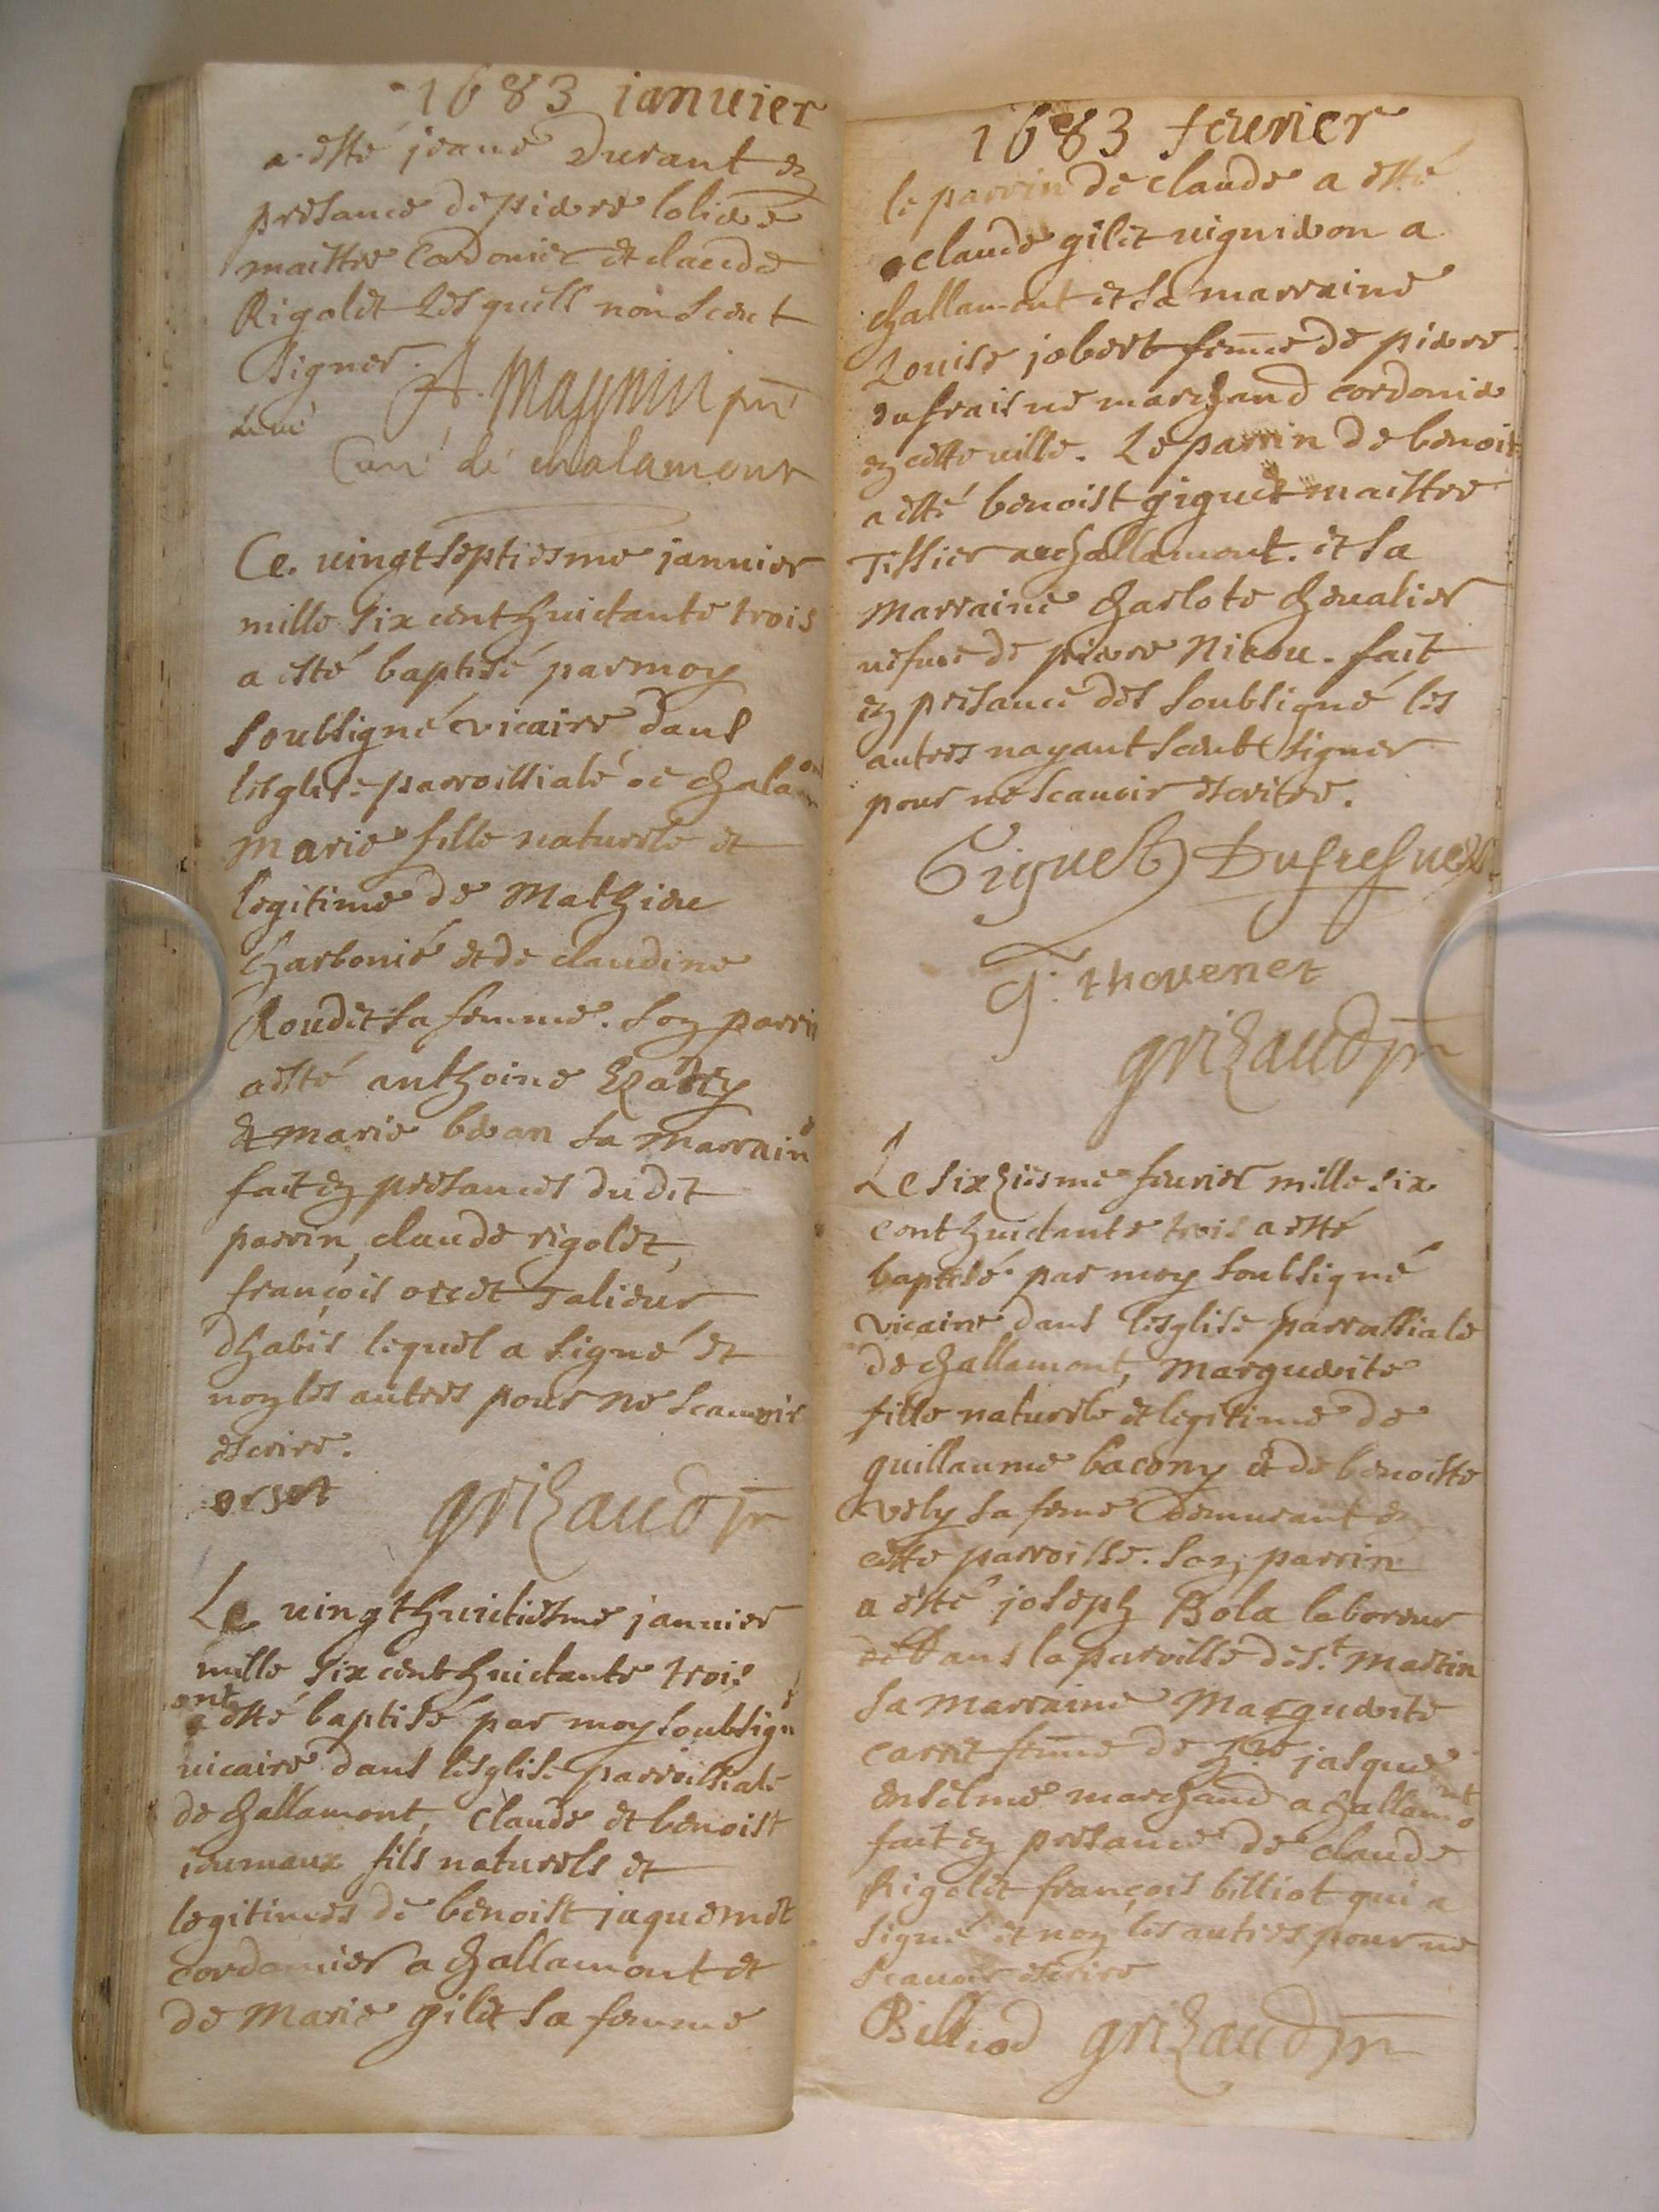 1683 ianuier
a esté jeane Durant en
presance de pierre lolieve
maistre Cordonier et claude
Rigolet Lesquels non sceut
signer.
A. Magnin prē
Curé de chalamont
Ce. uingtseptiesme januier
mille six cent huictante trois
a esté baptisé par moy
soubsigné vicaire dans
lesglise parroissiale de chalamon
marie fille naturele et
legitime de Mathieu
charbonié et de claudine
Roudet sa femme. son parrin
a esté anthoine
et marie beran sa marraine
fait en presances dudit
parrin, claude rigolet,
françois orcet Talieur
dhabis lequel a signé et
non les autres pour ne scauoir
escrire.
orset grizaud pr
Le uingthuictiesme januier
mille six cent huictante trois
ont esté baptisé par moy soubsigné
uicaire dans lesglise parroissiale
de challamont, claude et benoist
iumeaux fils naturels et
legitimes de benoist jaquemet
cordonnier a challamont et
de Marie gilet sa femme
1683 feurier
le parrin de claude a esté
claude gilet uigneron a
challamont et sa marraine
Louise jobert feme de pierre
dufraisne marchand cordonie
en cette uille. Le parrin de benoist
a esté benoist giguet maistre
Tissier a challamont. et sa
Marraine charlote cheualier
uefue de pierre Nicou. fait
en presance des soubsigné les
autres nayant sceut signer
pour ne scauoir escrire.
Giguet Dufresne
thevenet
grizaud pr
Le sixziesme feurier mille six
cent huictante trois a esté
baptisé par moy soubsigné
vicaire dans lesglise parrossiale
de challamont, Marguerite
fille naturele et legitime de
guillaume bacony et de benoiste
vely sa feme demurant en
cette parroisse. son parrin
a esté joseph Bola laboreur
dans la parroisse de st. Martin
sa marraine Marguerite
carret feme de jasque
enselme marchand a challamont
fait en presance de claude
Rigolet françois billiot qui a
signé et non les autres pour ne
scauoir escrire
Billiod grizaud pr